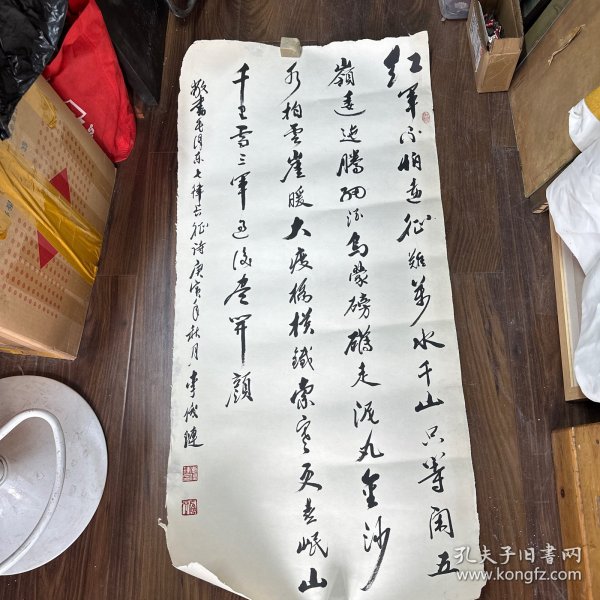 红军不怕远征难万水千山只等闲五
嶺逶迤腾细浪乌蒙磅礴走泥丸金沙
水拍雲崖暖大渡桥横鐵索寒更喜岷山
千里雪三军过後尽开颜
敬書毛泽东七律长征诗庚寅年秋月李俊
孔夫子旧书网
www.kongfz.com